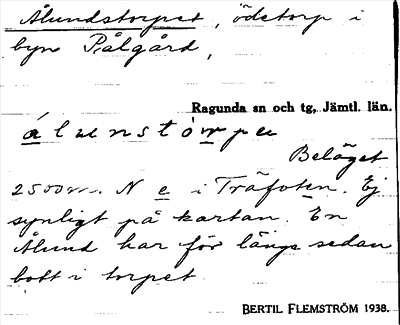 Ålundstorpet, ödetorp i
byn Pålgård,
Ragunda sn och tg, Jämtl. län.
álunstórpeɩ
Beläget
2500 m. N e i Träfoten. Ej
synligt på kartan. En
Ålund har för länge sedan
bott i torpet
BERTIL FLEMSTRÖM 1938.